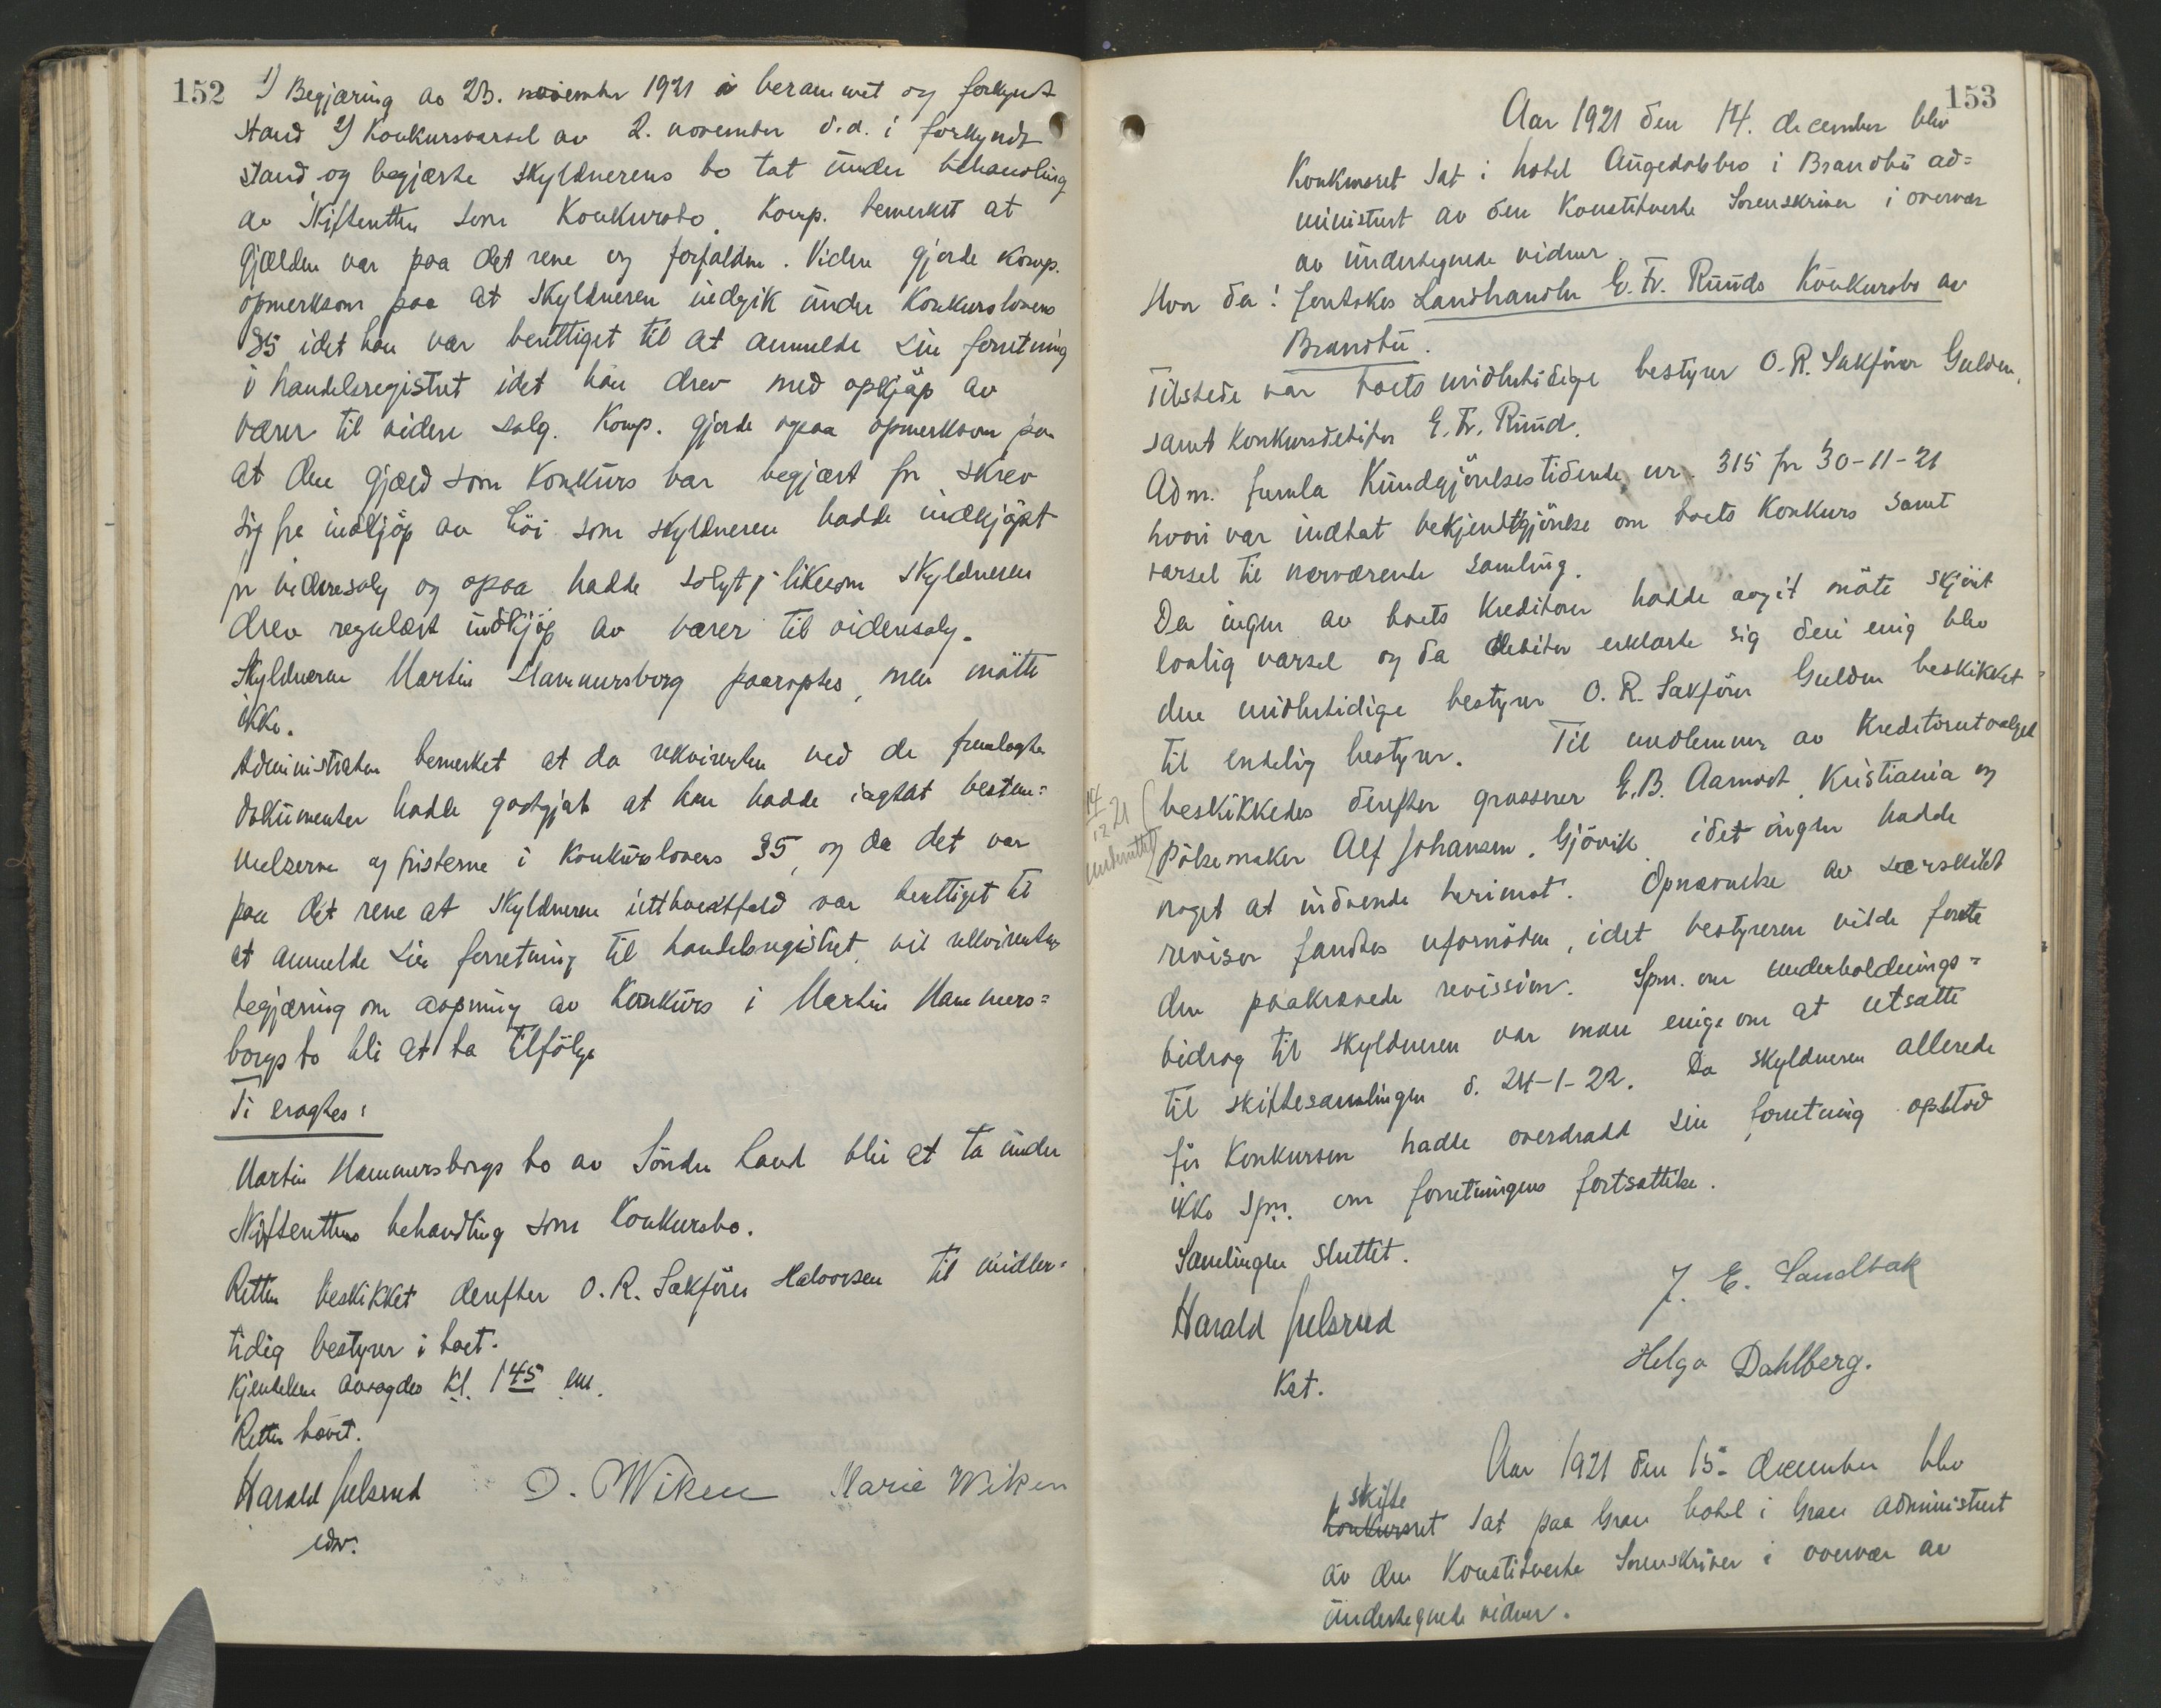 152
1) Begjæring av 23. november 1921 i berammet og forkyndt
stand 2) Konkursvarsel av 2. november d.a. i forkyndt
stand og begjærte skyldnerens bo tat under behandling
av skifteretten som Konkursbo. Komp. bemerket at
gjælden var paa det rene og forfalden. Videre gjorde Komp.
opmerksom paa at skyldneren indgik under Konkurslovens
§5 idet han var berettiget til at anmelde sin forretning
i handelsregistret idet han drev med opkjøp av
varer til videre salg. Komp. gjorde ogsaa opmerksom paa
at den gjæld som Konkurs var begjært for skrev
sig fra indkjøp av höi som skyldneren hadde indkjøpt
for videresalg og ogsaa hadde solgt, likesom skyldneren
drev regulært indkjøp av varer til videresalg.
Skyldneren Martin Hammersborg paaroptes, men mötte
ikke.
Administrator bemerket at da rekvirenten ved de fremlagte
dokumenter hadde godtgjort at han hadde iagttat bestem=
melserne og fristerne i Konkurslovens §5, og da det var
paa det rene at skyldneren iethvertfald var berettiget til
at anmelde sin forretning til handelsregistret, vil rekvirentens
begjæring om aapning av Konkurs i Martin Hammers=
borgs bo bli at ta tilfölge
Ti eragtes:
Martin Hammersborgs bo av Söndre Land blir at ta under
Skifterettens behandling som Konkursbo.
Retten beskikket derefter O.R. Sakförer Halvorsen til midler=
tidig bestyrer i boet.
Kjendelsen avsagdes Kl. 1 45 em.
Retten hævet.
Harald Julsrud O. Wiken Marie Wiken
edsv.
153
Aar 1921 den 14. december blev
Konkursret sat i hotel Augedalsbro i Brandbu ad=
ministrert av den Konstituerte Sorenskriver i overvær
av undertegnede vidner.
Hvor da: foretokes Landhandler E. Fr. Ruuds Konkursbo av
Brandbu.
Tilstede var boets midlertidige bestyrer O.R. Sakförer Gulden,
samt Konkursdebitor E. Fr. Ruud.
Adm. fremla Kundgjörelsestidende nr. 315 for 30-11-21
hvori var indtat bekjendtgjörelse om boets Konkurs samt
varsel til nærværende samling.
Da ingen av boets Kreditorer hadde avgit möte skjönt
lovlig varsel og da debitor erklærte sig deri enig blev
den midlertidige bestyrer O. R. Sakförer Gulden beskikket
til endelig bestyrer. Til medlemmer av Kreditorutvalget
14/12 21
underrettet
beskikkedes derefter grosserer E.B. Aamodt, Kristiania og
Pölsemaker Alf Johansen, Gjövik idet ingen hadde
noget at indvende herimot. Opnævnelse av særskilt
revisor fandtes ufornöden, idet bestyreren vilde foreta
den paakrævede revission. Spm. om underholdnings=
bidrag til skyldneren var man enige om at utsætte
til skiftesamlingen d. 24-1-22. Da skyldneren allerede
för Konkursen hadde overdradd sin forretning opstod
ikke spm. om forretningens fortsættelse.
Samlingen sluttet.
Harald Julsrud J. E. Sandbak
Kst. Helga Dahlberg.
Aar 1921 den 15. december blev
skifte
Konkursret sat paa Gran hotel i Gran administrert
av den Konstituerte Sorenskriver i overvær av
undertegnede vidner.